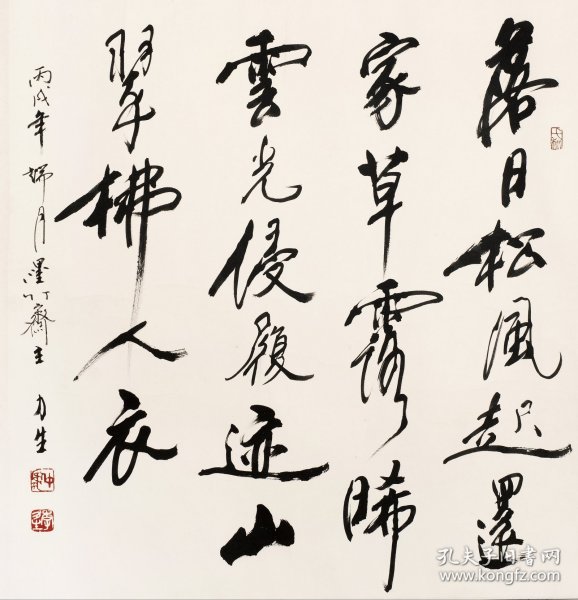 落日松風起還
家草露晞
雲光侵履迹山
翠拂人衣
丙戌年 月墨竹齋主 力生
孔夫子旧书网
www.kongfz.com